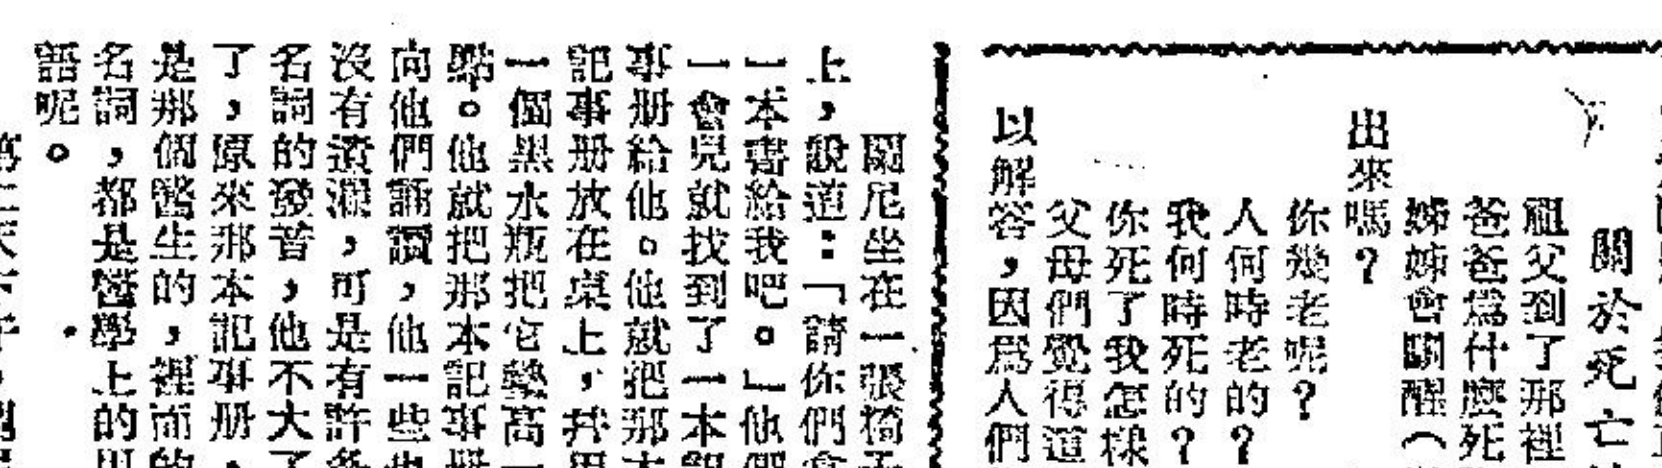 關於死亡
祖父到了那裡
爸爸爲什麼死
姊姊會關醒(
出來嗎?
你幾老呢?
人何時老的?
我何時死的?
你死了我怎樣
父母們覺得這
以解答,因爲人們
關尼坐在一張椅
上,說道:「請你們拿
一本書給我吧。」他們
一會兒就找到了一本記
事册給他。他就把那本
記事册放在桌上,并用
一個黑水瓶把它墊高一
點。他就把那本記事册
向他們誦讀,他一些也
沒有遺漏,可是有許多
名詞的發音,他不大了
了,原來那本記事册,
是那個醫生的,裡面的
名詞,都是醫學上的用
語呢。